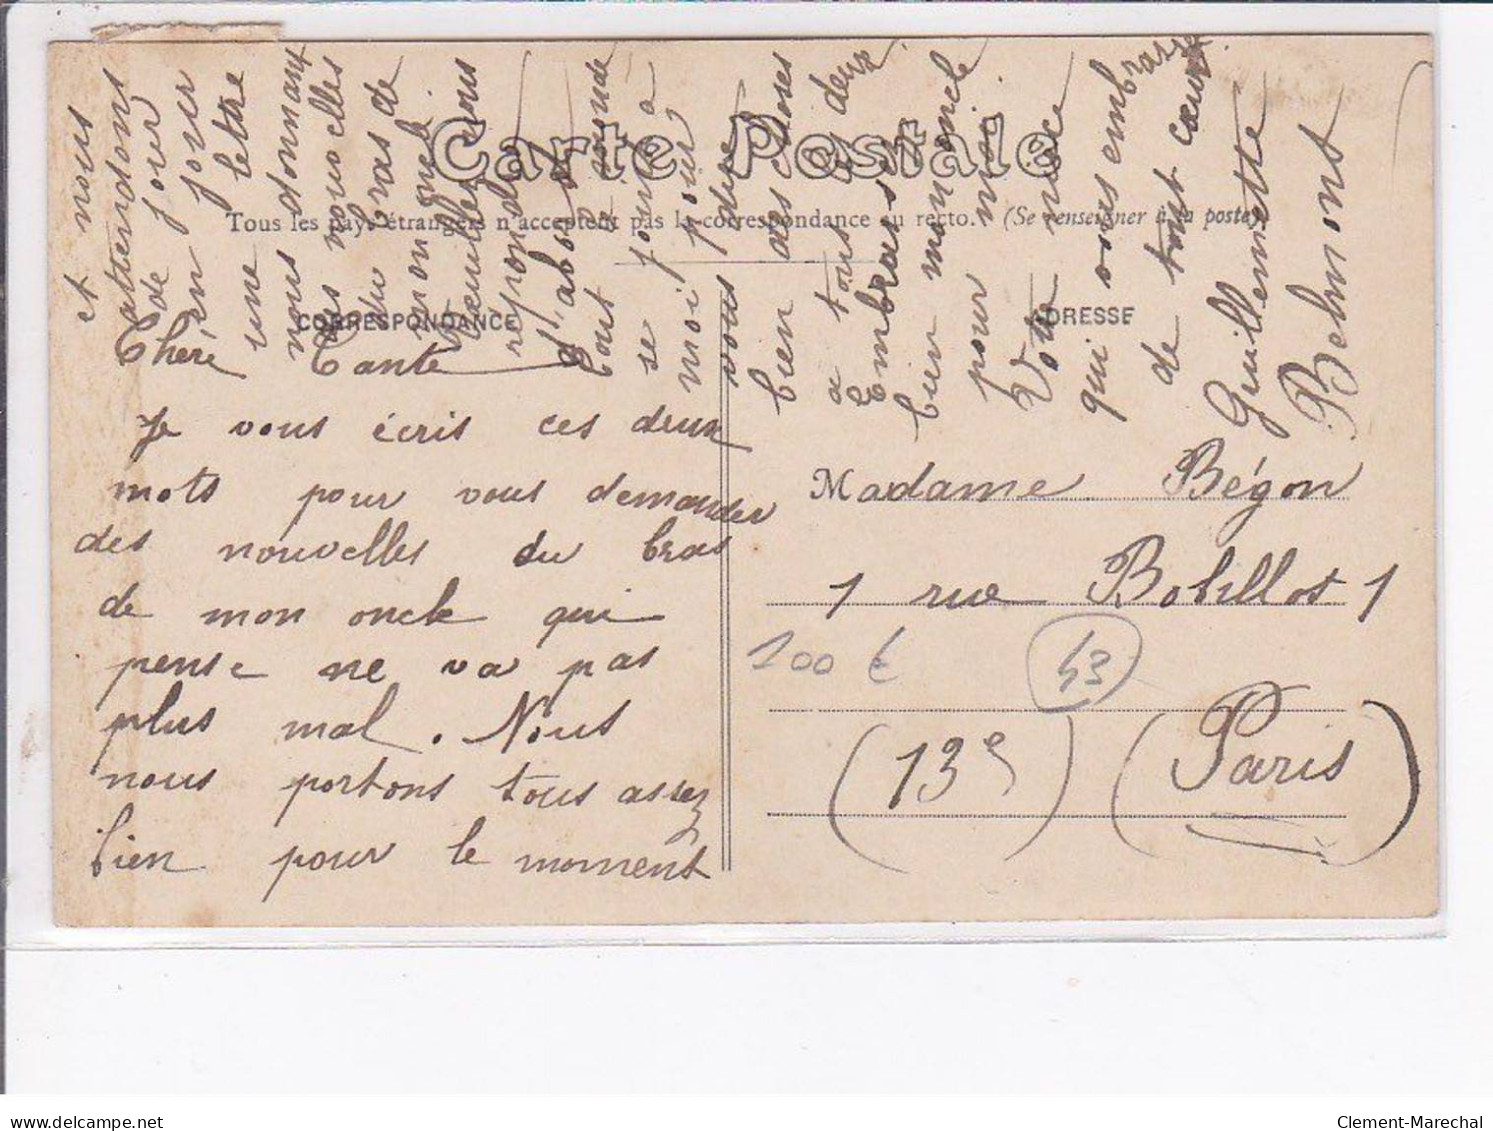 Carte Postale
Tous les pays étrangers n'acceptent pas la correspondance au recto. (Se renseigner à la poste)
CORRESPONDANCE
ADRESSE
Chère Tante
Je vous écris ces deux
mots pour vous demander
des nouvelles du bras
de mon oncle qui
pense ne va pas
plus mal. Nous
nous portons tous assez
bien pour le moment
et nous
attendons
de jour
en jour
une lettre
nous donnant
des nouvelles
du bras de
mon oncle
Veuillez nous
répondre
d'abord
tout le monde
se joint à
moi pour
vous dire
bien des choses
à tous deux
Embrassez
bien mon oncle
pour moi
Votre nièce
qui vous embrasse
de tout cœur
Guillemette
Belmont
Madame Bégon
1 rue Bobillot 1
100 €
43
(13e) (Paris)
Clement-Marechal
delcampe.net